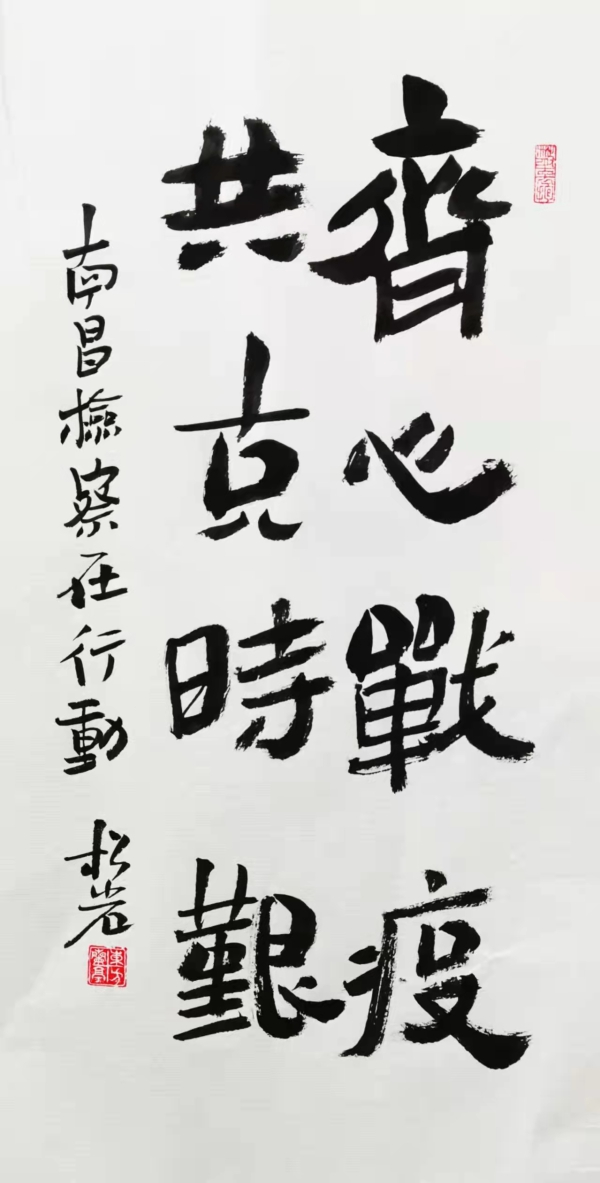 齊心戰疫
共克時艱
南昌檢察在行動 松岩